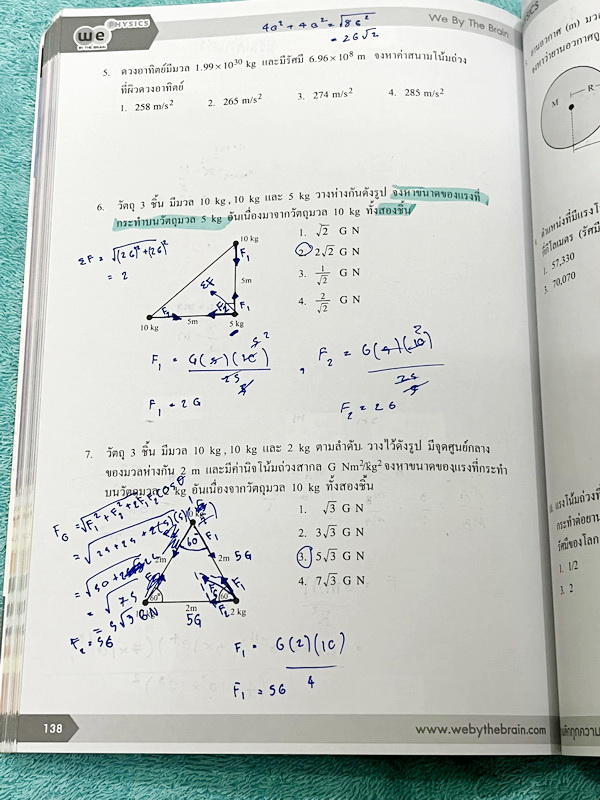 we PHYSICS
BY THE BRAIN
We By The Brain
4G² + 4G² = √8G²
= 2G√2
5. ดวงอาทิตย์มีมวล 1.99×10³⁰ kg และมีรัศมี 6.96×10⁸ m จงหาค่าสนามโน้มถ่วง
ที่ผิวดวงอาทิตย์
1. 258 m/s² 2. 265 m/s² 3. 274 m/s² 4. 285 m/s²
6. วัตถุ 3 ชิ้น มีมวล 10 kg, 10 kg และ 5 kg วางห่างกันดังรูป จงหาขนาดของแรงที่
กระทำบนวัตถุมวล 5 kg อันเนื่องมาจากวัตถุมวล 10 kg ทั้งสองชิ้น
1. √2 G N
2. 2√2 G N
3. 1/√2 G N
4. 2/√2 G N
ΣF = √(2G)² + (2G)²
= 2
10 kg
F₁
5m
ΣF
F₂ F₂ F₁
10 kg 5m 5 kg
F₁ = G(5)(10) 2
25
F₁ = 2G
, F₂ = G(5)(10) 2
25
F₂ = 2G
7. วัตถุ 3 ชิ้น มีมวล 10 kg, 10 kg และ 2 kg ตามลำดับ วางไว้ดังรูป มีจุดศูนย์กลาง
ของมวลห่างกัน 2 m และมีค่านิจโน้มถ่วงสากล G Nm²/kg² จงหาขนาดของแรงที่กระทำ
บนวัตถุมวล kg อันเนื่องจากวัตถุมวล 10 kg ทั้งสองชิ้น
1. √3 G N
2. 3√3 G N
3. 5√3 G N
4. 7√3 G N
60 F₁
2m 2m 5G
60° 2m 60 2 kg
5G
= √75
= 5√3 GN
F₂ = 5G
F₁ = G(2)(10)
4
F₁ = 5G
138
www.webythebrain.com
M R
1. 57,330
3. 70,070
รัศมีของโลก
1. 1/2
3. 2